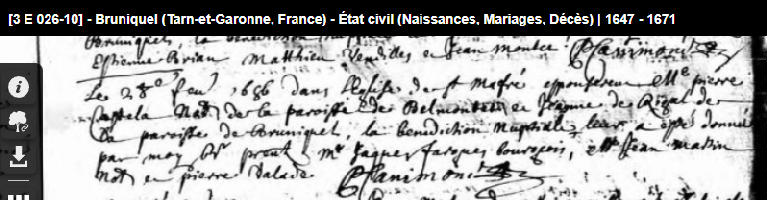 [3 E 026-10] - Bruniquel (Tarn-et-Garonne, France) - État civil (Naissances, Mariages, Décès) | 1647 - 1671
Bruniquel, la benediction
Estienne Matthieu Vendilles et Jean
Le 28e feu 1656 dans l'eglise de st Mafré espouserent Me pierre
Castela Not de la paroisse de Belmontet et Jeanne de Rigal de
la paroisse de Bruniquel, la benediction nuptiale leur a esté donné
par moy pnt Mr Jaques Jacques bourgeois, Me Jean Massin
Not et pierre Dalade